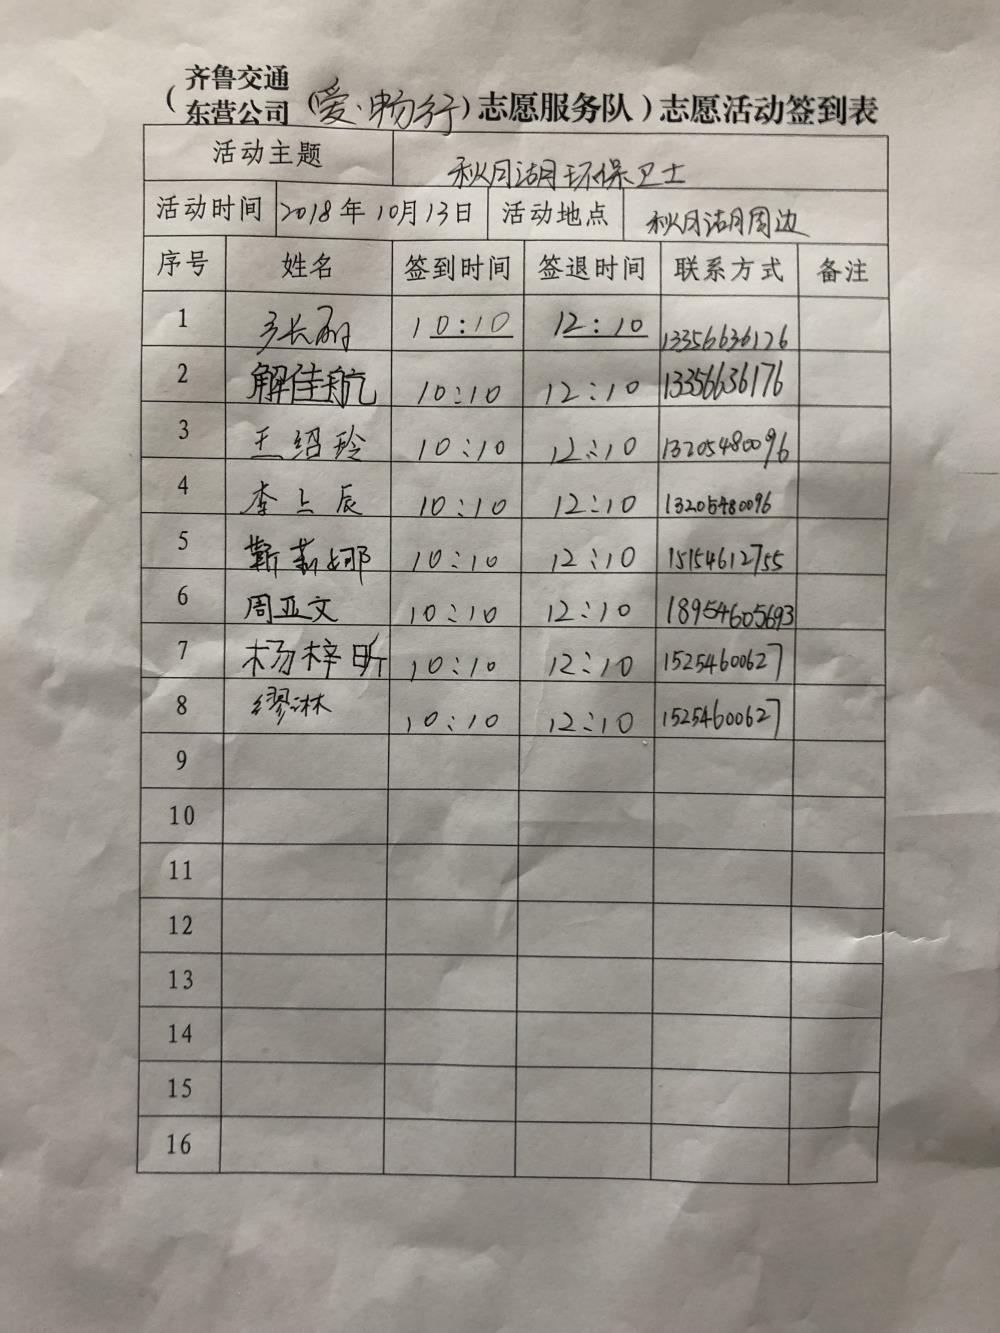 (齐鲁交通东营公司(爱·畅行)志愿服务队)志愿活动签到表
活动主题 秋月湖环保卫士
活动时间 2018年10月13日 活动地点 秋月湖周边
序号 姓名 签到时间 签退时间 联系方式 备注
1 10:10 12:10 13356636176
2 解佳航 10:10 12:10 13356636176
3 王绍玲 10:10 12:10 13205480096
4 李上辰 10:10 12:10 13205480096
5 靳莉娜 10:10 12:10 15154612755
6 周亚文 10:10 12:10 18954605693
7 杨梓昕 10:10 12:10 15254600627
8 缪淋 10:10 12:10 15254600627
9
10
11
12
13
14
15
16